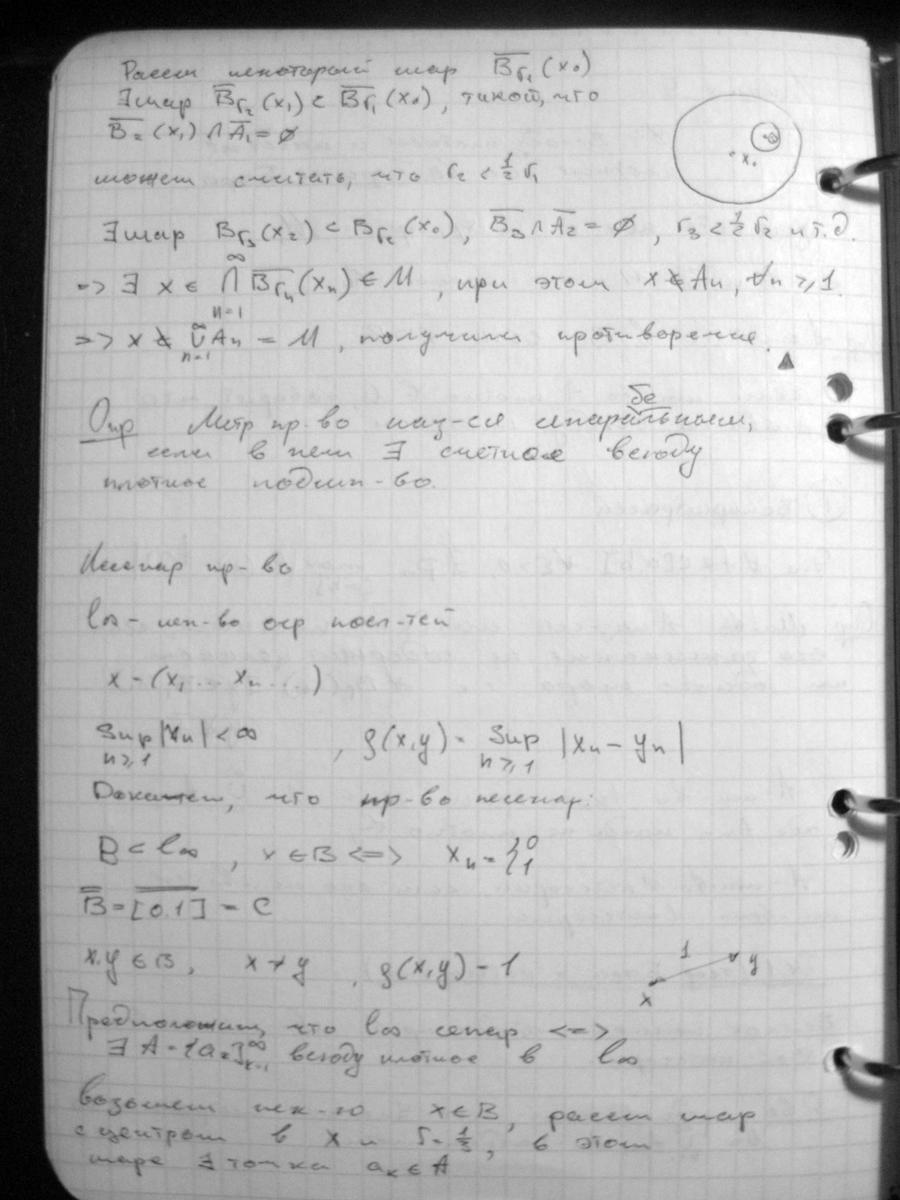 Рассм некоторый шар B̅r₁(x₀)
∃ шар B̅r₂(x₁) ⊂ B̅r₁(x₀), такой, что
B̅₂(x₁) ∩ A̅₁ = ∅
x₀
можем считать, что r₂ < ½ r₁
∃ шар Br₃(x₂) ⊂ Br₂(x₀), B̅₃ ∩ A̅₂ = ∅, r₃ < ½ r₂ и т.д.
=> ∃ x ∈ ∞⋂n=1 B̅rₙ(xₙ) ∈ M, при этом x ∉ Aₙ, ∀n ≥ 1.
=> x ∉ ∞⋃n=1 Aₙ = M, получили противоречие. ▲
Опр Метр пр-во наз-ся сепарабельным,
если в нем ∃ счетное всюду
плотное подмн-во.
Несепар пр-во
l∞ - мн-во огр посл-тей
x = (x₁ ... xₙ ...)
Sup n≥1 |xₙ| < ∞, ρ(x,y) = Sup n≥1 |xₙ - yₙ|
Докажем, что пр-во несепар:
B ⊂ l∞, x ∈ B <=> xₙ = {0 1
B̿ = [0.1]̿ = C
x,y ∈ B, x ≠ y, ρ(x,y) = 1
x 1 y
Предположим, что l∞ сепар <=>
∃ A = {aₖ}∞k=1 всюду плотное в l∞
возьмем нек-ю x ∈ B, рассм шар
с центром в x и r = ⅓, в этом
шаре ∃ точка aₖ ∈ A